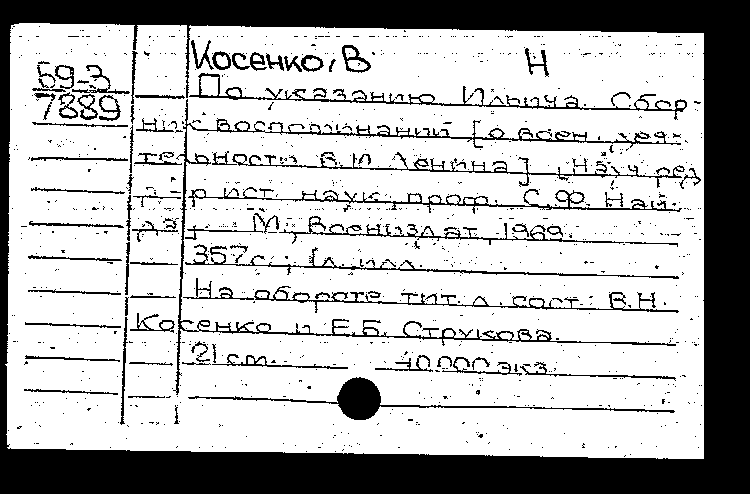 Косенко, В. Н
69-3
7889
По указанию Ильича. Сбор-
ник воспоминаний [о воен. дея-
тельности В.И. Ленина] [Науч. ред.
д-р ист. наук, проф. С.Ф. Най-
да]. М., Воениздат, 1969.
357 с.; 1 л. илл.
На обороте тит. л. сост.: В.Н.
Косенко и Е.Б. Струкова.
21 см. 40.000 экз.